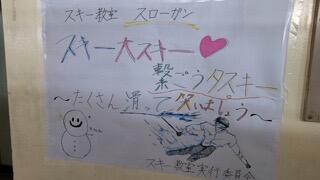 スキー教室 スローガン
スキー大スキー♥
繋べうタスキー
〜たくさん滑って笑いましょう〜
スキー教室実行委員会